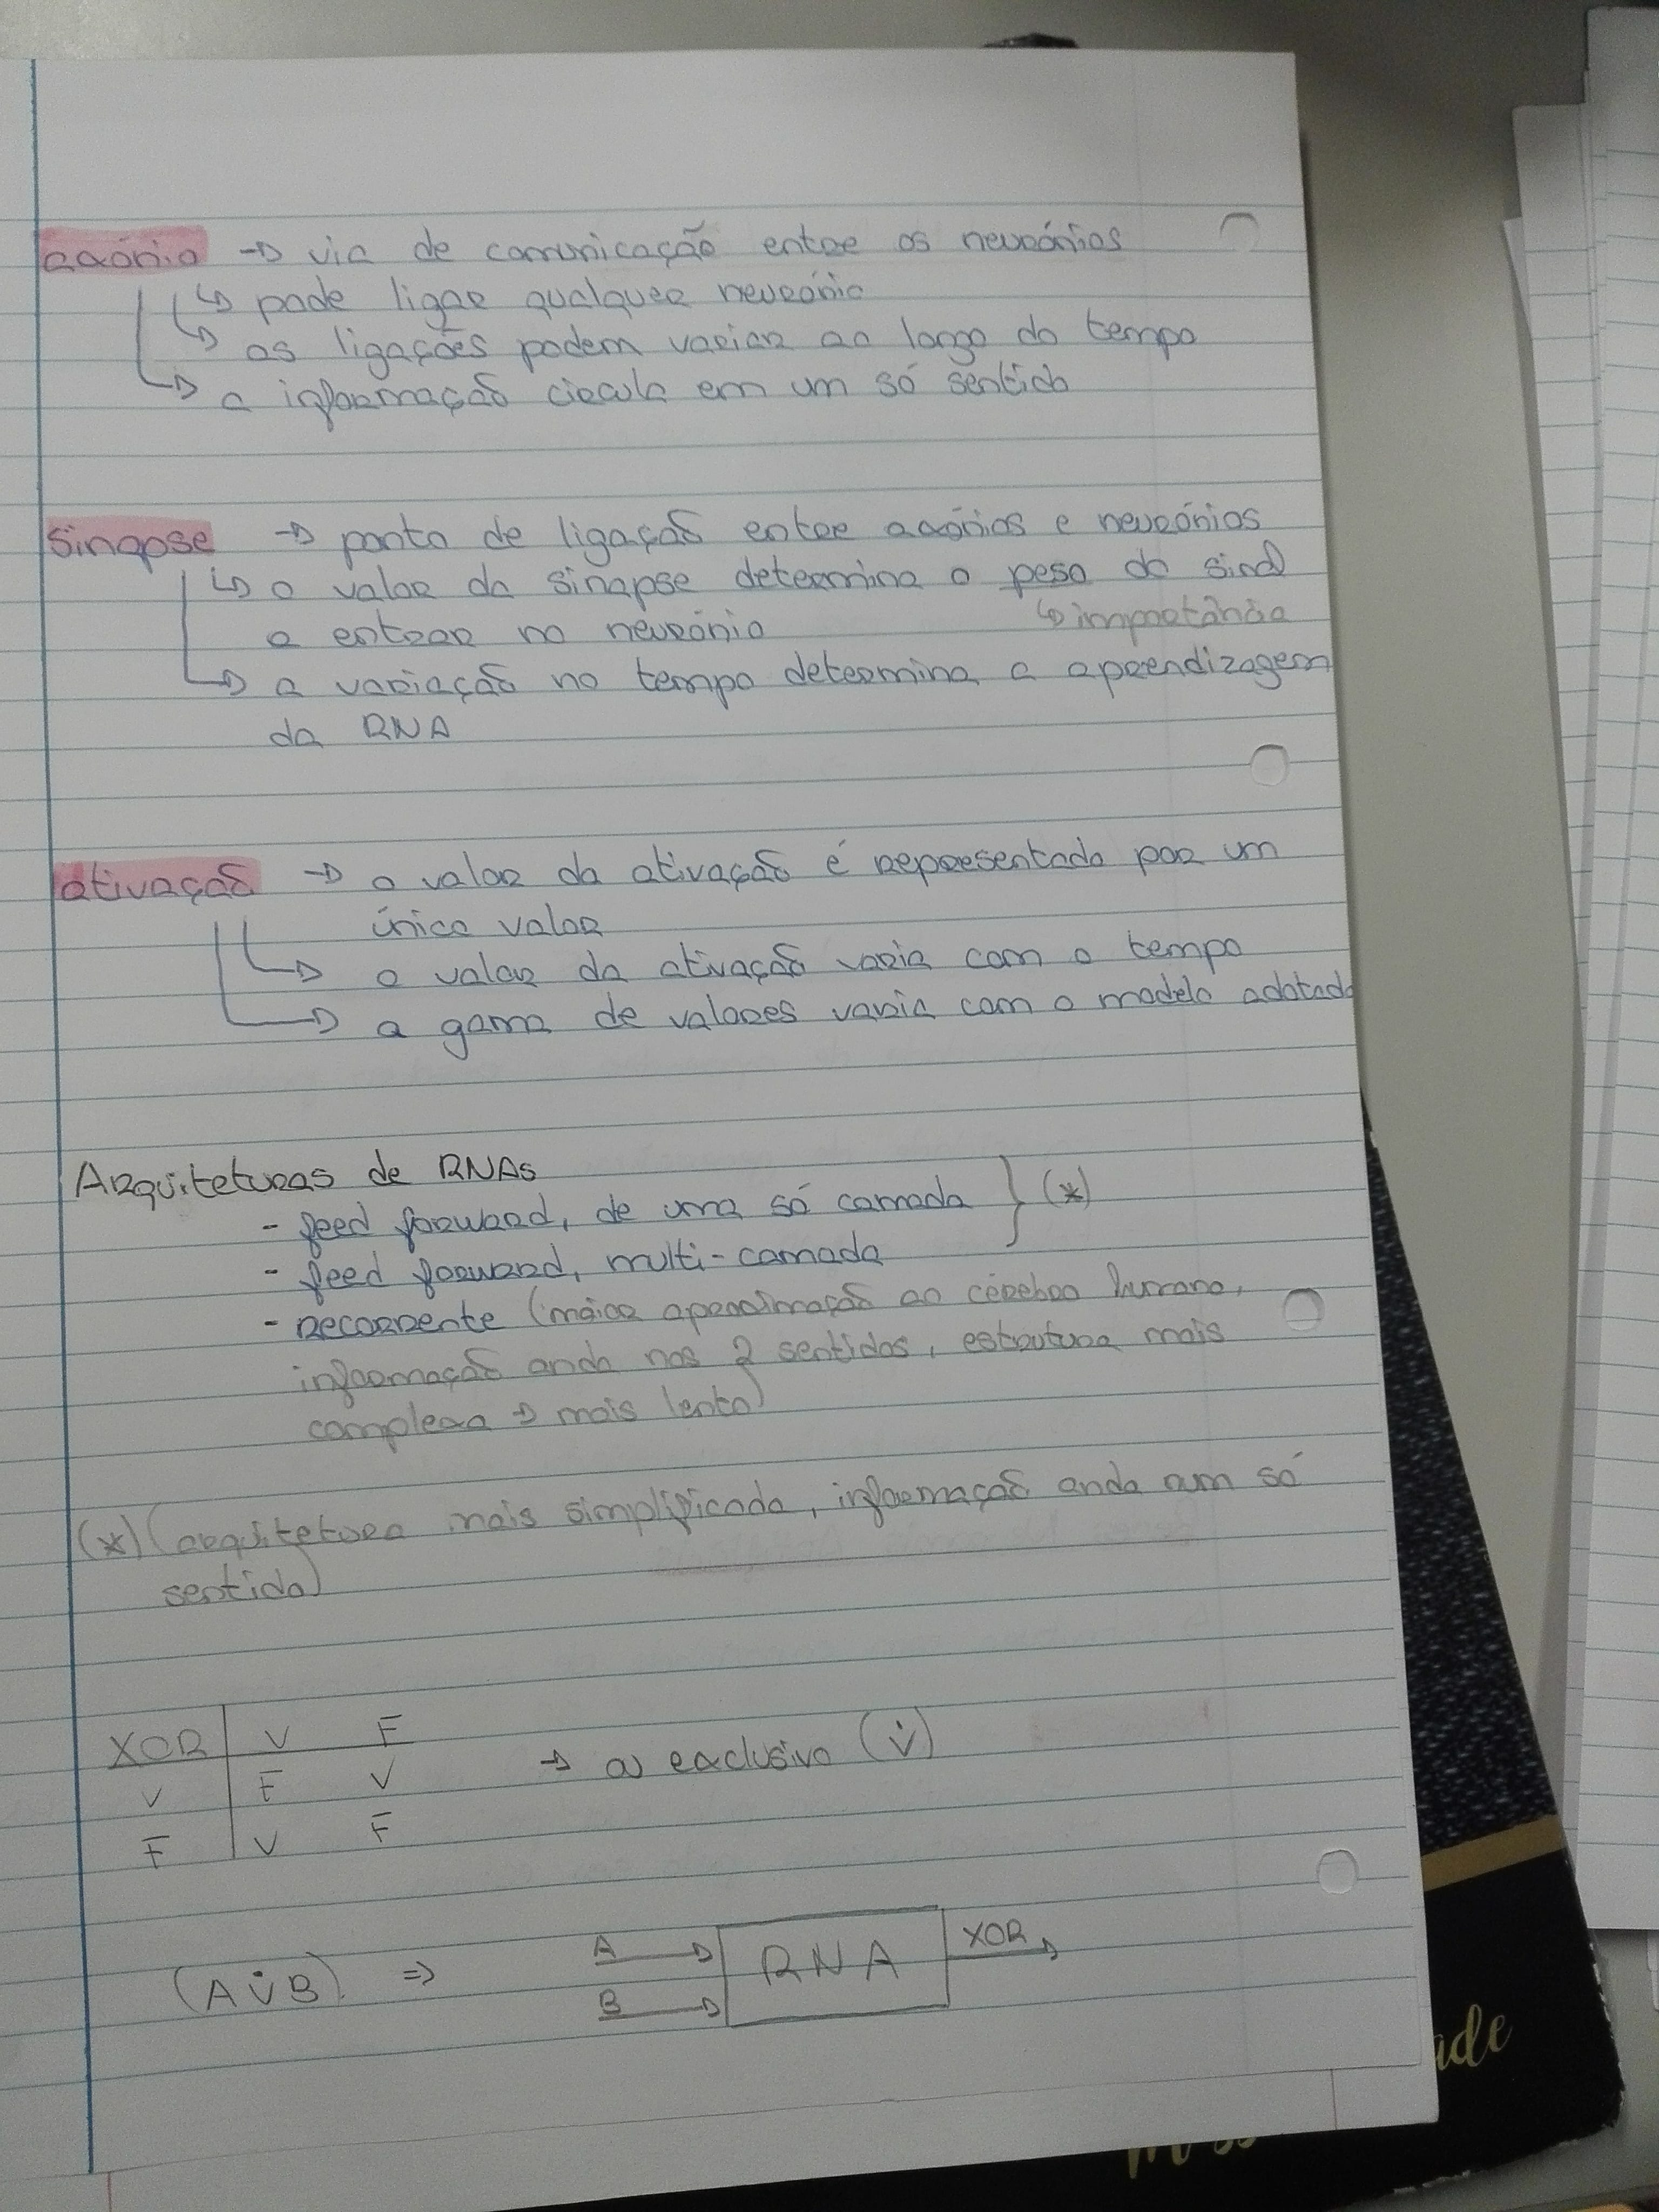 axónio → via de comunicação entre os neurónios
↳ pode ligar qualquer neurónio
↳ as ligações podem variar ao longo do tempo
↳ a informação circula em um só sentido
sinapse → ponto de ligação entre axónios e neurónios
↳ o valor da sinapse determina o peso do sinal
↳ importância
a entrar no neurónio
↳ a variação no tempo determina a aprendizagem
da RNA
ativação → o valor da ativação é representado por um
único valor
↳ o valor da ativação varia com o tempo
↳ a gama de valores varia com o modelo adotado
Arquiteturas de RNAs
- feed forward, de uma só camada } (*)
- feed forward, multi-camada
- recorrente (maior aproximação ao cérebro humano,
informação anda nos 2 sentidos, estrutura mais
complexa → mais lento)
(*) (arquitetura mais simplificada, informação anda num só
sentido)
XOR V F
V F V → ou exclusivo (v̇)
F V F
(A v̇ B) ⇒ A → RNA XOR →
B →
ade